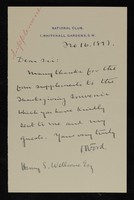 Supplement
NATIONAL CLUB,
1, WHITEHALL GARDENS, S.W.
Dec 16. 1897.
Dear Sir:
Many thanks for the
four supplements to the
Thanksgiving Souvenir
which you have kindly
sent to me and my
guests. Yours very truly
Henry S. Wellcome Esq